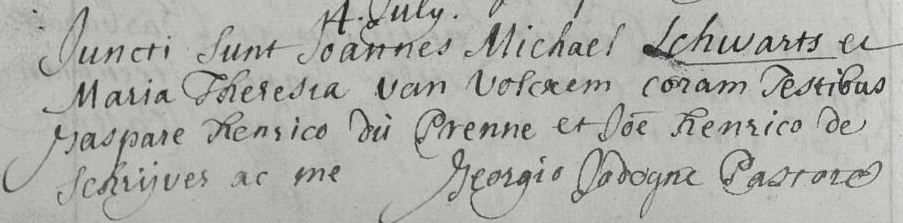 4. July.
Juncti sunt Joannes Michael Schwarts et
Maria Theresia van Volcxem coram Testibus
Gaspare henrico du Prenne et Joē henrico de
Schrijver ac me Georgio Jodogne Pastore